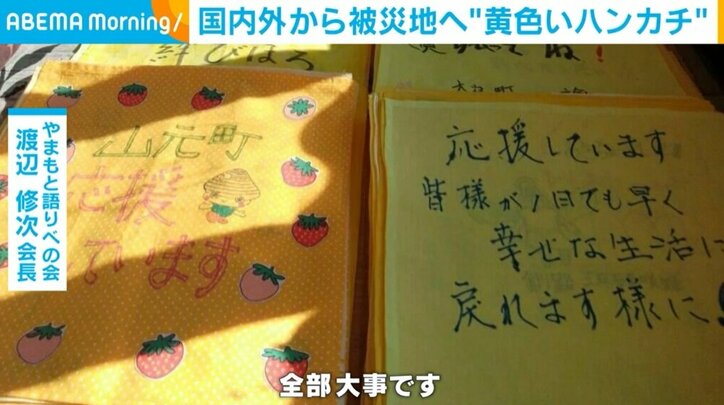 ABEMA Morning/
国内外から被災地へ"黄色いハンカチ"
やまもと語りべの会
渡辺 修次 会長
山元町
応援
しています
応援しています
皆様が1日でも早く
幸せな生活に
戻れます様に!
全部大事です